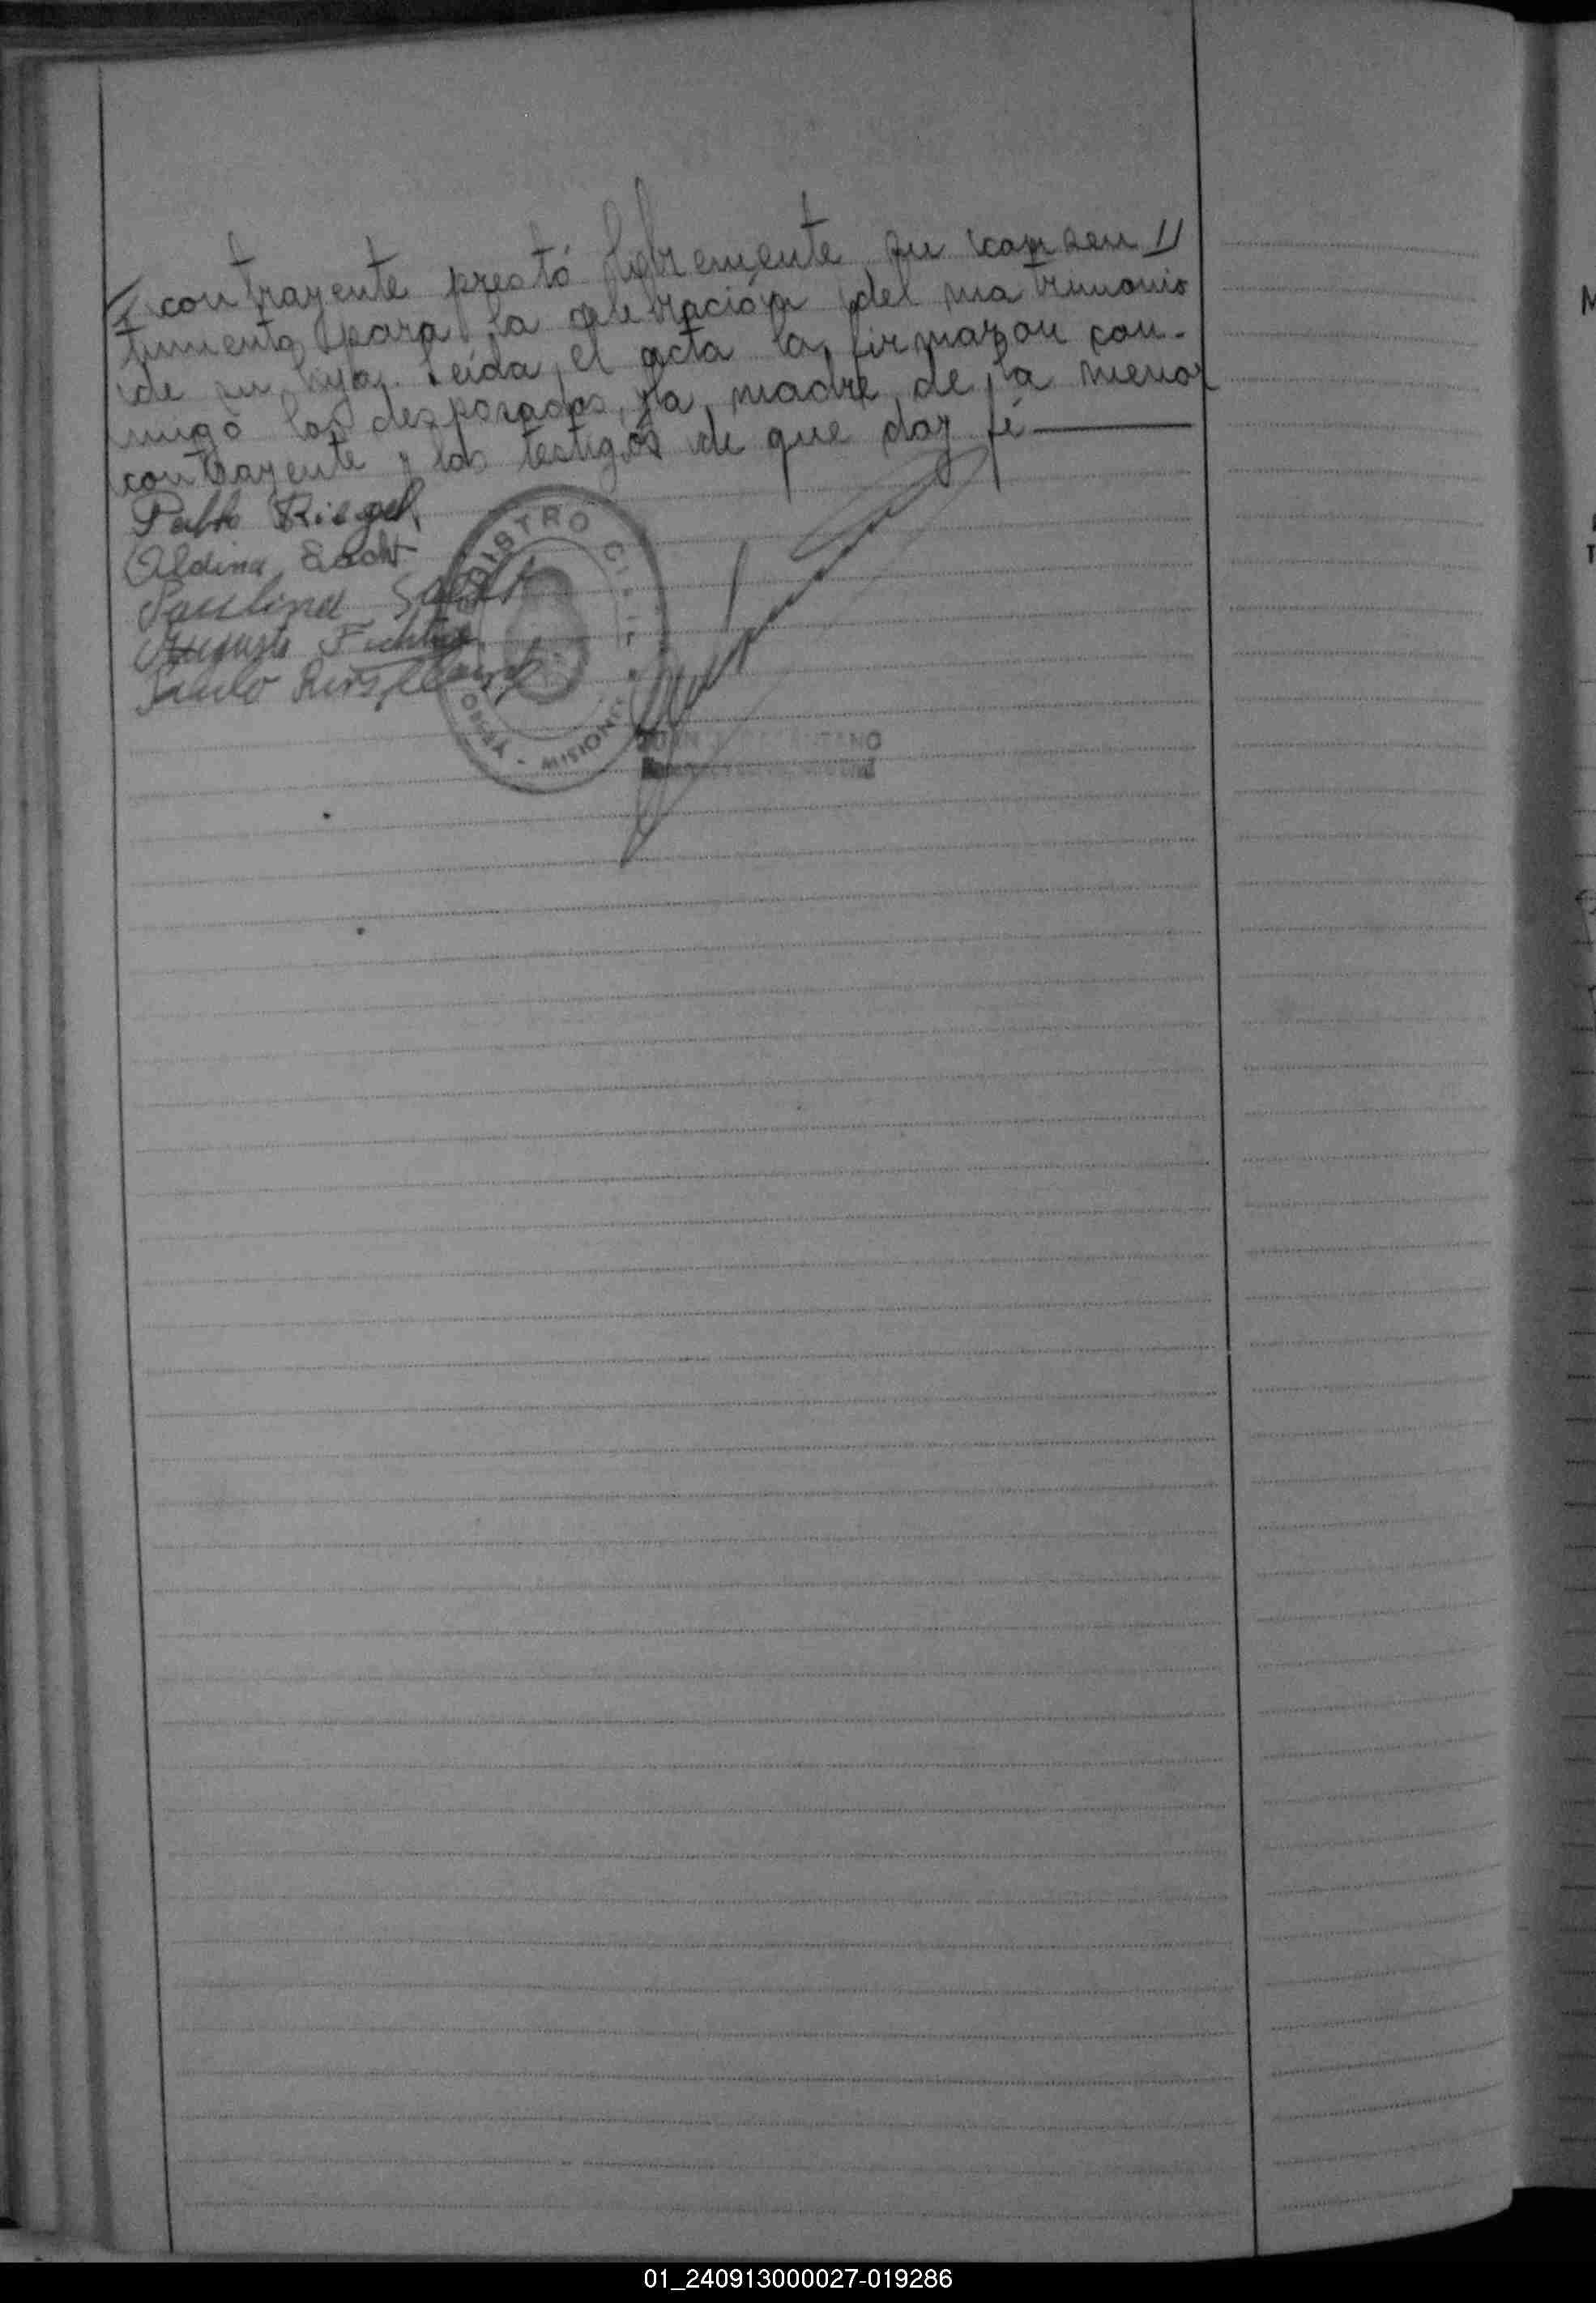 // contrayente prestó libremente su consen //
timiento para la celebración del matrimonio
de su hija. Leida el acta la firmaron con-
migo los desposados, la madre de la menor
contrayente y los testigos de que doy fé
Pablo Riegel
Aldina Sacht
Paulina Sacht
Augusto
Paulo
REGISTRO CIVIL
OBERÁ - MISIONES
01_240913000027-019286